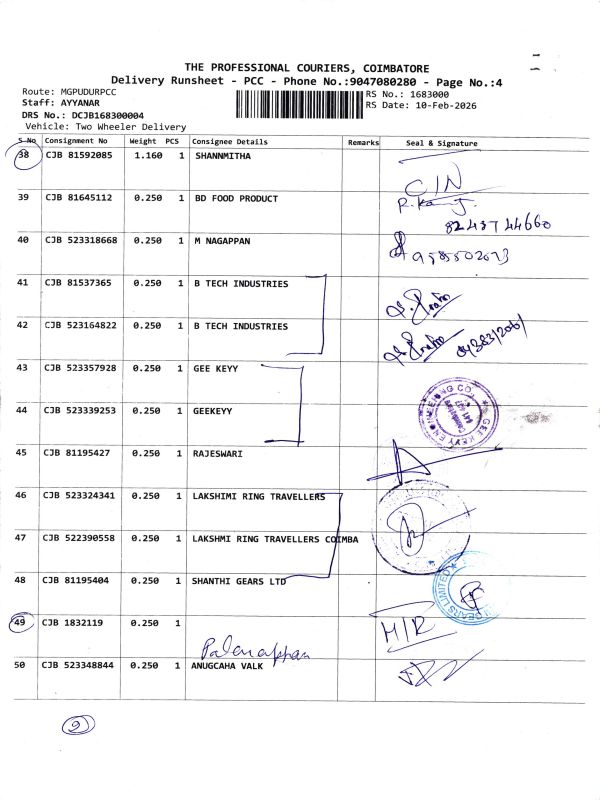 THE PROFESSIONAL COURIERS, COIMBATORE
Delivery Runsheet - PCC - Phone No.:9047080280 - Page No.:4
Route: MGPUDURPCC
RS No.: 1683000
Staff: AYYANAR
RS Date: 10-Feb-2026
DRS No.: DCJB168300004
Vehicle: Two Wheeler Delivery
S No Consignment No Weight PCS Consignee Details Remarks Seal & Signature
38 CJB 81592085 1.160 1 SHANNMITHA
C/N
39 CJB 81645112 0.250 1 BD FOOD PRODUCT
82437 44660
40 CJB 523318668 0.250 1 M NAGAPPAN
41 CJB 81537365 0.250 1 B TECH INDUSTRIES
42 CJB 523164822 0.250 1 B TECH INDUSTRIES
43 CJB 523357928 0.250 1 GEE KEYY
44 CJB 523339253 0.250 1 GEEKEYY
GEE KEYY ENGINEERING CO.
45 CJB 81195427 0.250 1 RAJESWARI
46 CJB 523324341 0.250 1 LAKSHIMI RING TRAVELLERS
47 CJB 522390558 0.250 1 LAKSHMI RING TRAVELLERS COIMBA
48 CJB 81195404 0.250 1 SHANTHI GEARS LTD
GEARS LIMITED
49 CJB 1832119 0.250 1
Palanappan
H/R
50 CJB 523348844 0.250 1 ANUGCAHA VALK
2